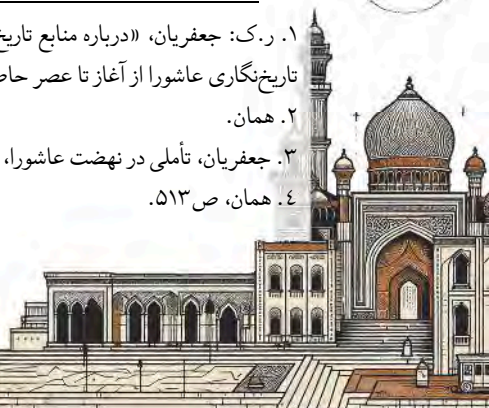 ۱. ر.ک: جعفریان، «درباره منابع تاریخ
تاریخ‌نگاری عاشورا از آغاز تا عصر
۲. همان.
۳. جعفریان، تأملی در نهضت عاشورا،
٤. همان، ص۵۱۳.